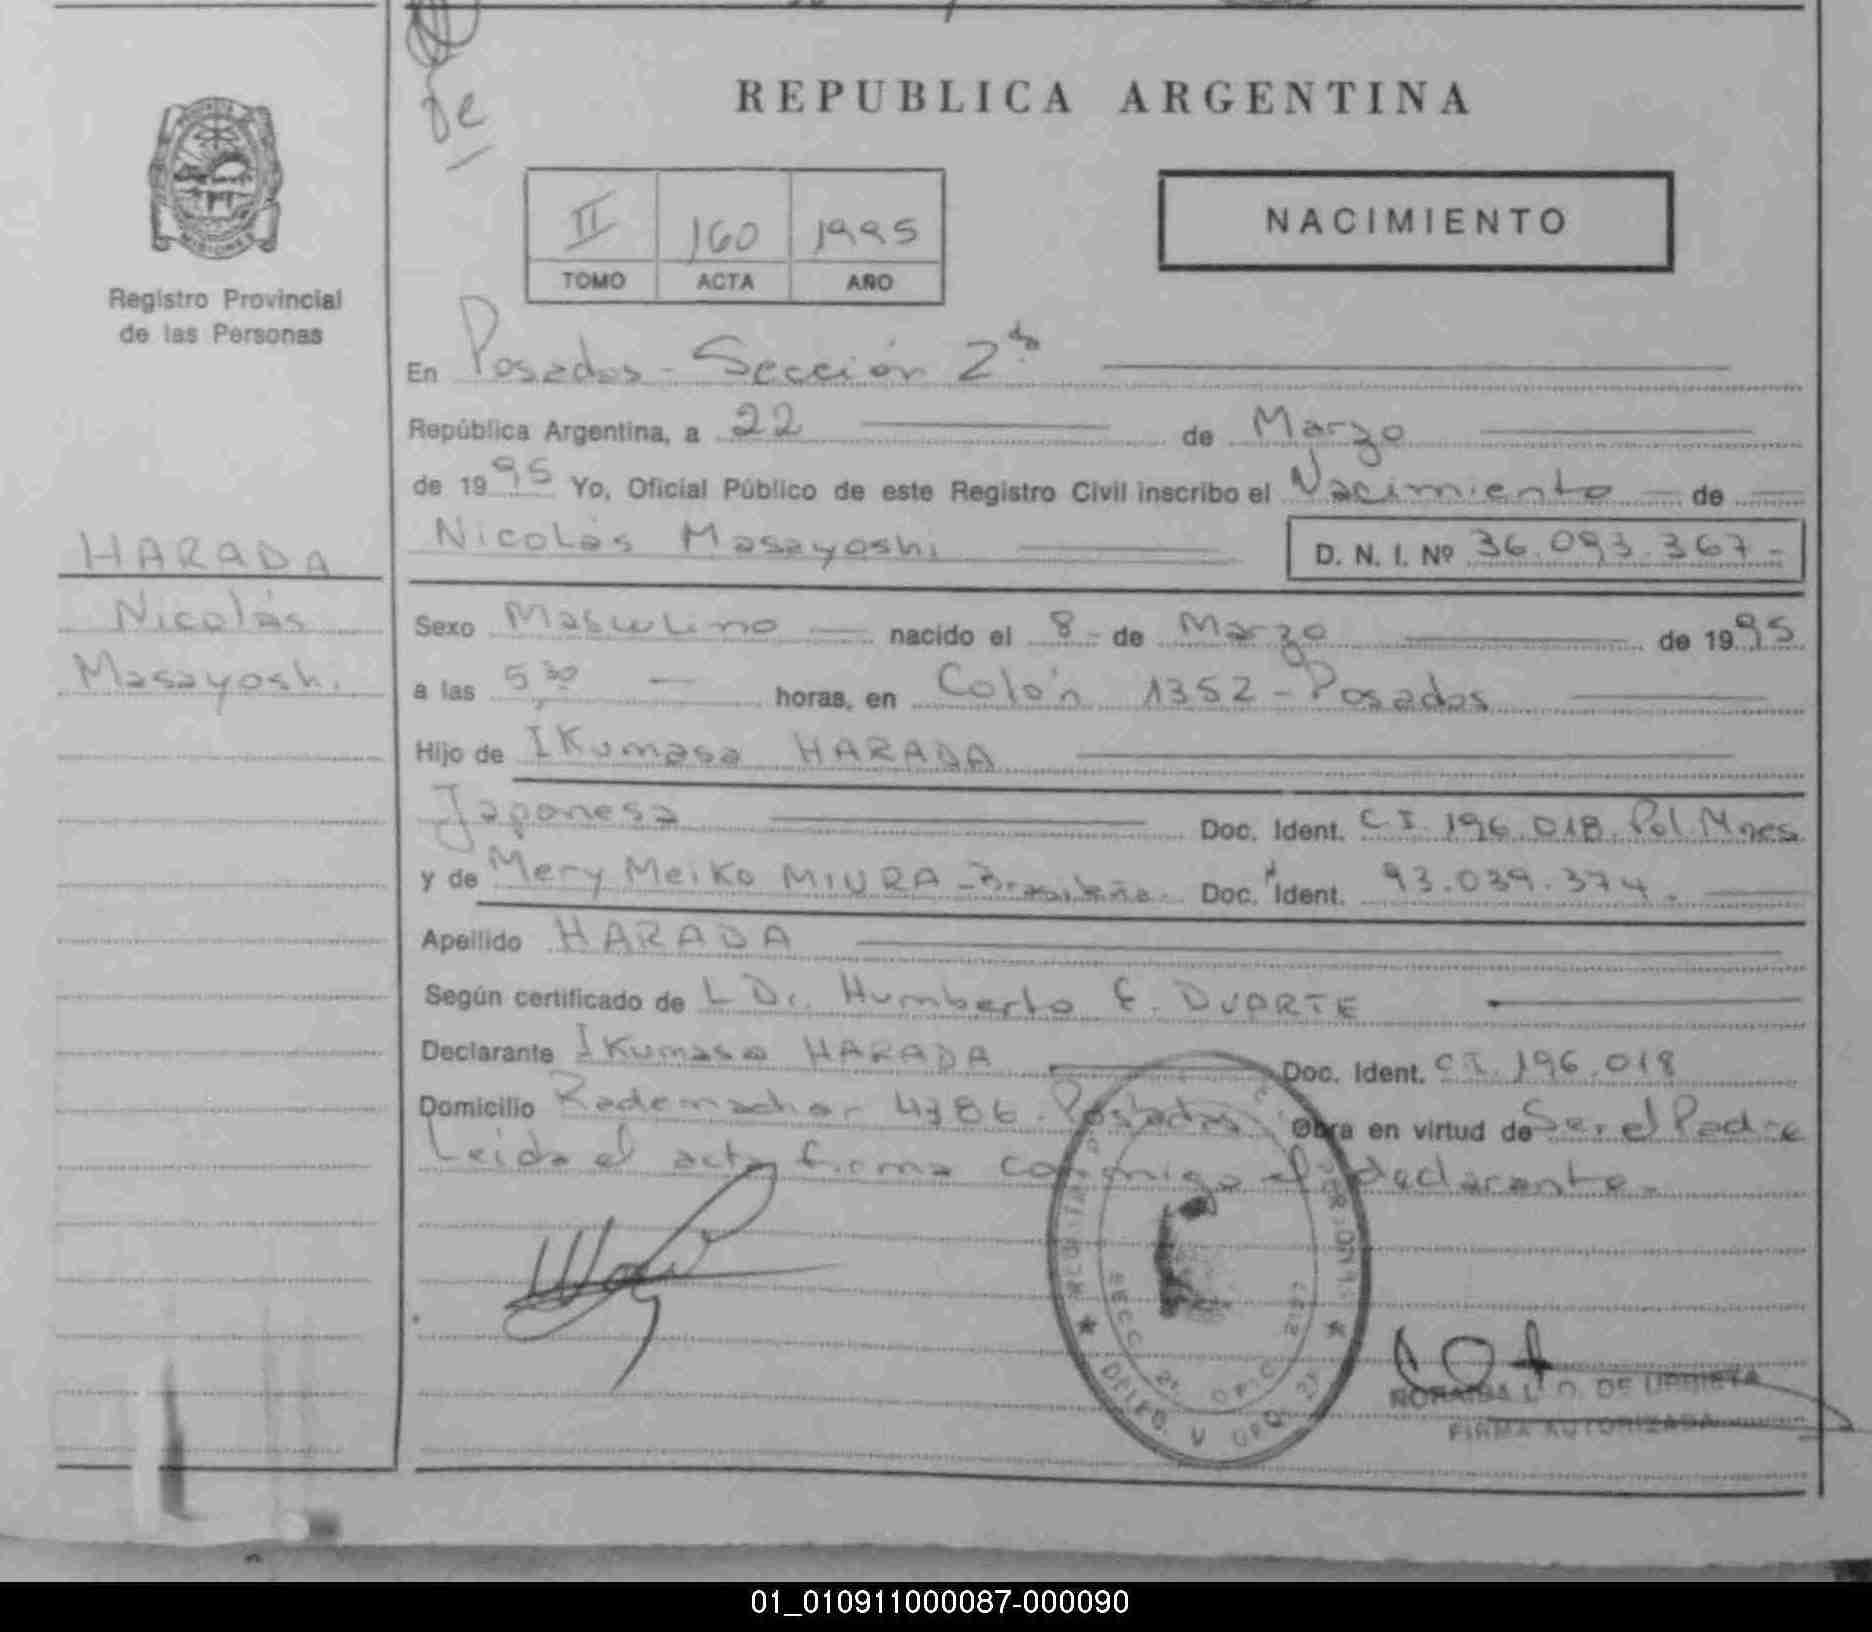 de
REPUBLICA ARGENTINA
II 160 1995
TOMO ACTA AÑO
NACIMIENTO
Registro Provincial
de las Personas
En Posadas - Sección 2da
República Argentina, a 22 de Marzo
de 1995 Yo, Oficial Público de este Registro Civil inscribo el Nacimiento de
Nicolás Masayoshi D. N. I. Nº 36.093.367-
HARADA
Nicolás
Masayoshi
Sexo Masculino nacido el 8 - de Marzo de 1995
a las 5,30 horas, en Colón 1352 - Posadas
Hijo de IKumasa HARADA
Japonesa Doc. Ident. C I. 196.018 Pol. Mnes
y de Mery Meiko MIURA - Brasileña - Doc. Ident. 93.039.374.
Apellido HARADA
Según certificado de L Dr. Humberto E. DUARTE
Declarante IKumasa HARADA Doc. Ident. C I. 196.018
Domicilio Rademacher 4386 - Posadas Obra en virtud de Ser el Padre
Leida el acta firma conmigo el declarante.-
SECC 2ª
FIRMA AUTORIZADA
01_010911000087-000090